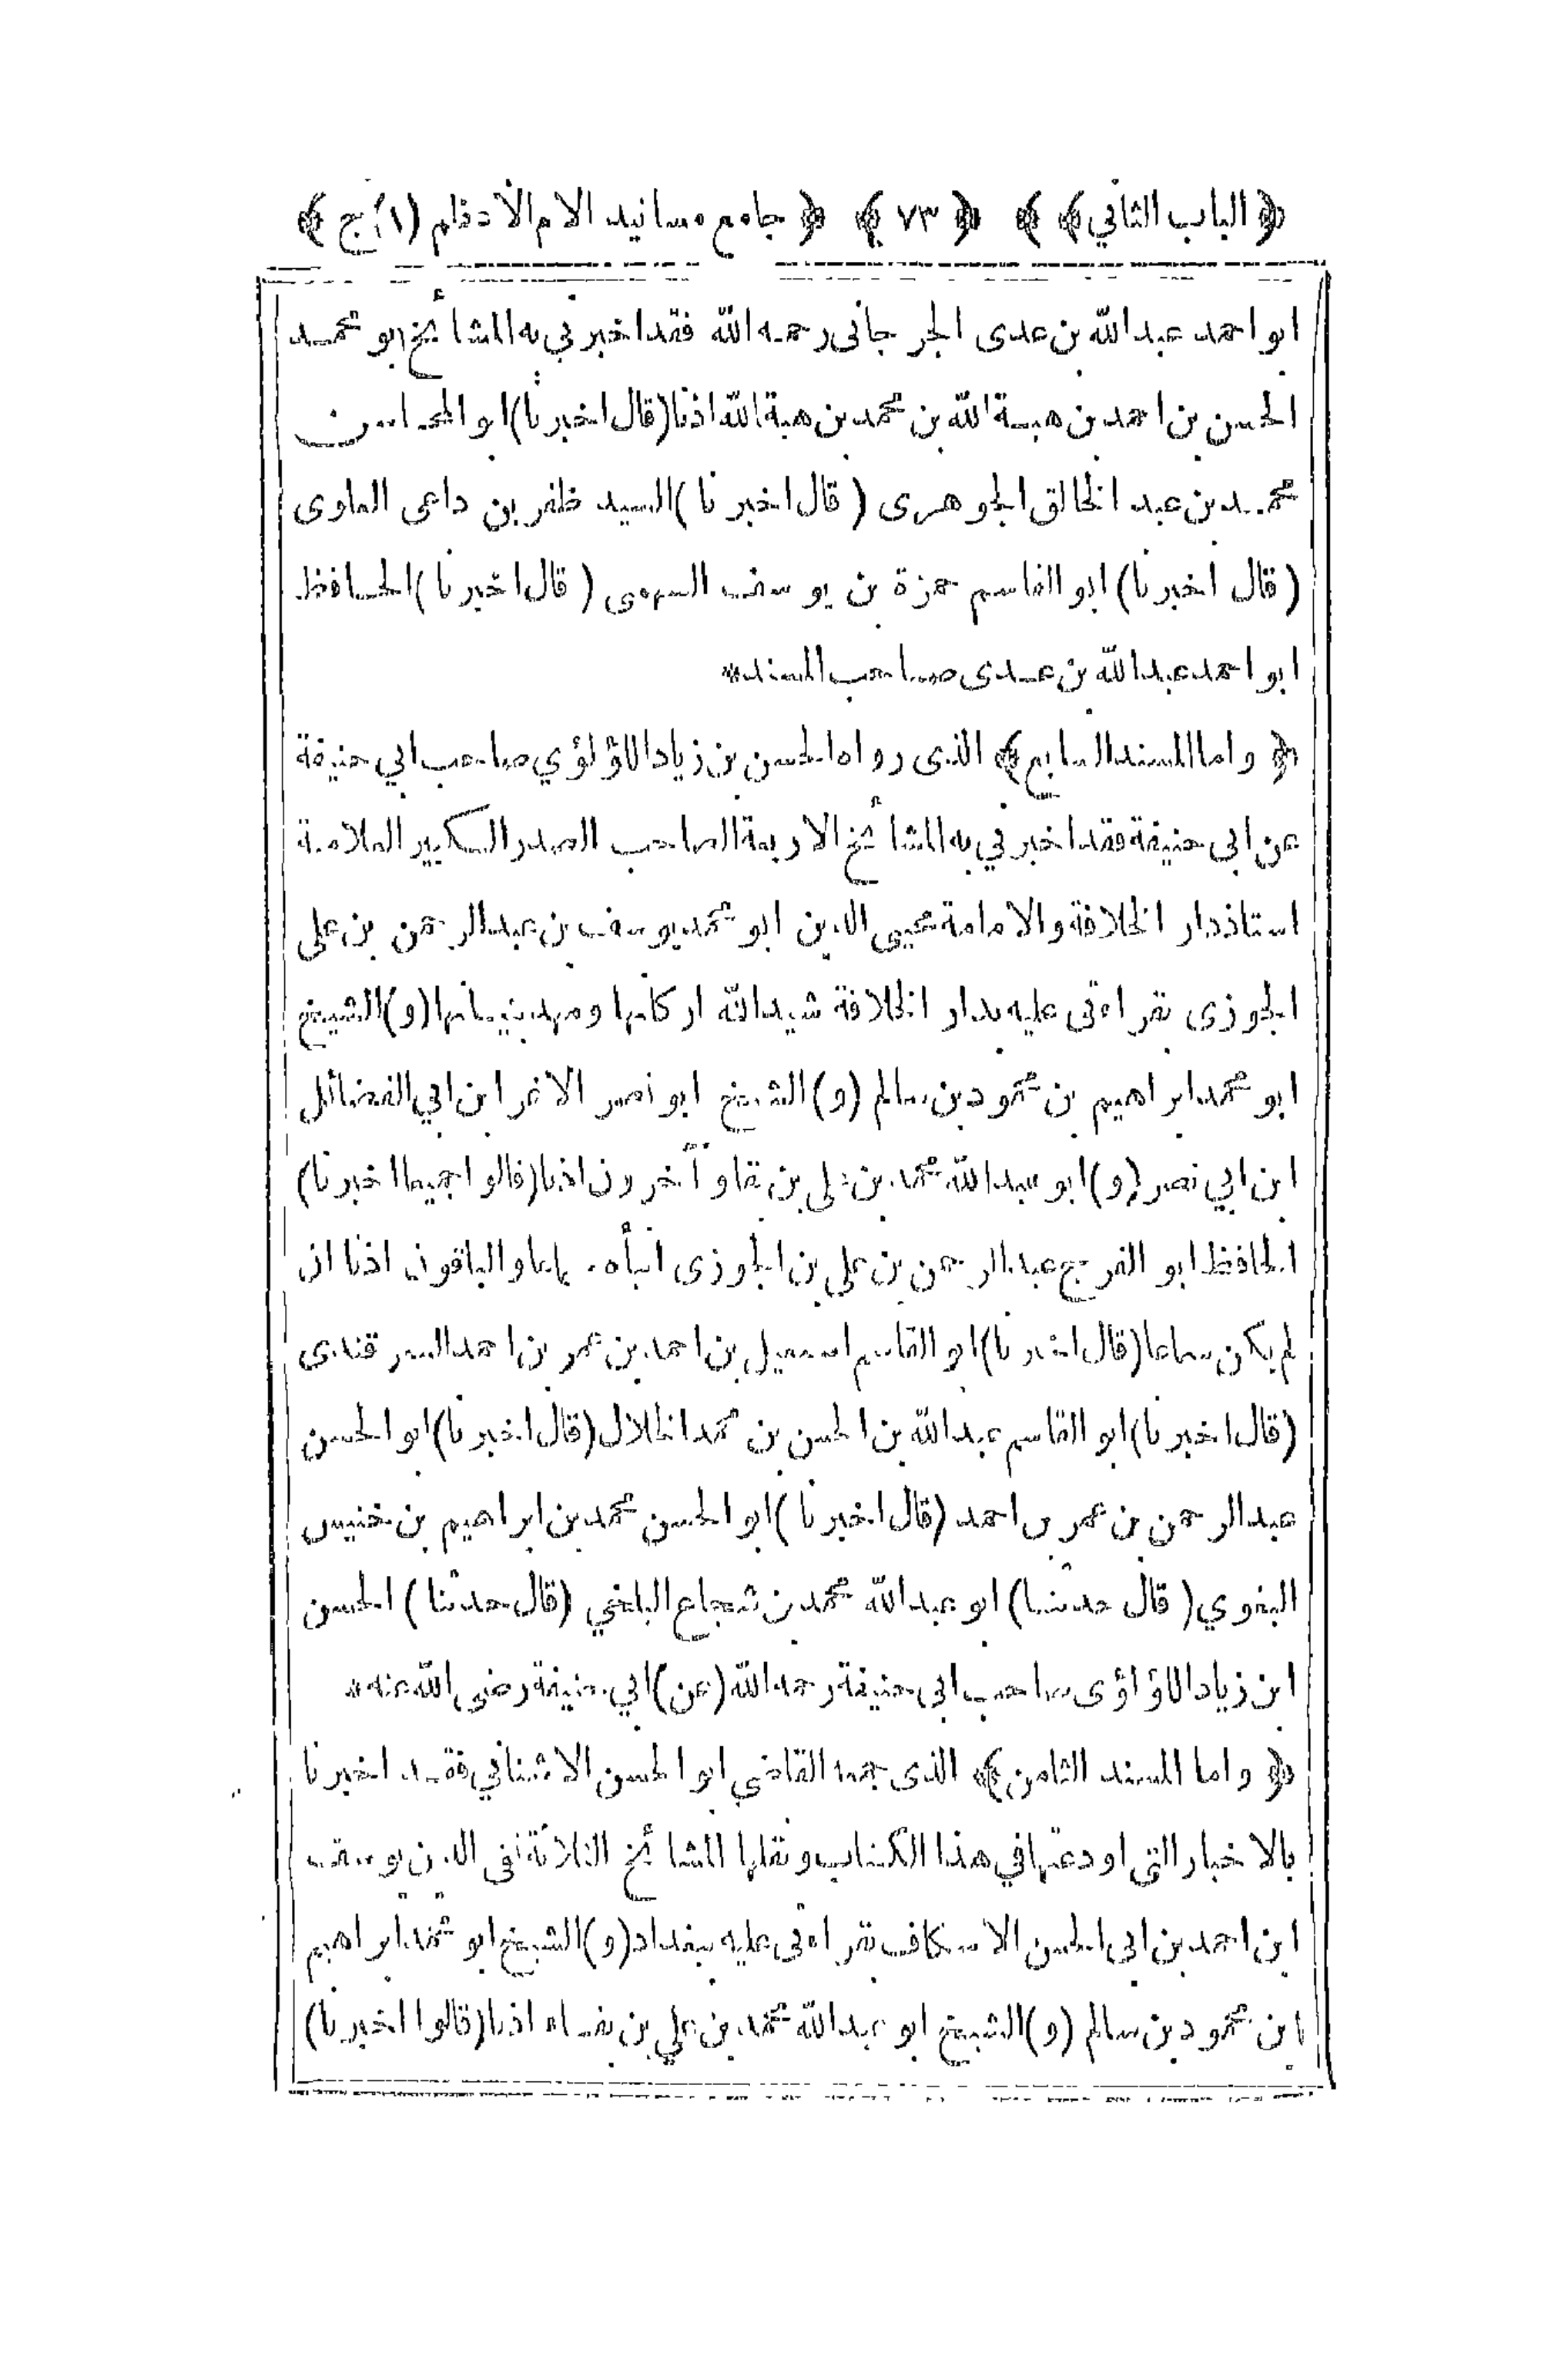 ﴿ الباب الثاني ﴾ ﴿ ٧٣ ﴾ ﴿ جامع مسانيد الامام الاعظم (١) ج ﴾
ابو احمد عبدالله بن عدى الجرجانى رحمه الله فقد اخبرني به المشائخ ابو محمد
الحسن بن احمد بن هبة الله بن محمد بن هبة الله اذنا (قال اخبرنا) ابو المحاسن
محمد بن عبد الخالق الجوهرى (قال اخبرنا) السيد ظفر بن داعى العلوى
(قال اخبرنا) ابو القاسم حمزة بن يوسف السهمى (قال اخبرنا) الحافظ
ابو احمد عبدالله بن عدى صاحب المسند*
﴿ واما المسند السابع ﴾ الذى رواه الحسن بن زياد اللؤلؤي صاحب ابي حنيفة
عن ابى حنيفة فقد اخبرني به المشائخ الاربعة الصاحب الصدر الكبير العلامة
استاذدار الخلافة والامامة محيى الدين ابو محمد يوسف بن عبد الرحمن بن على
الجوزى بقراءتى عليه بدار الخلافة شيد الله اركانها ومهد بنيانها (و) الشيخ
ابو محمد ابراهيم بن محمود بن سالم (و) الشيخ ابو نصر الاغر ابن ابي الفضائل
ابن ابي نصر (و) ابو عبدالله محمد بن على بن بقا وآخرون اذنا (قالوا جميعا اخبرنا)
الحافظ ابو الفرج عبد الرحمن بن على بن الجوزى انبأه سماعا والباقون اذنا ان
لم يكن سماعا (قال اخبرنا) ابو القاسم اسمعيل بن احمد بن عمر بن احمد السمرقندى
(قال اخبرنا) ابو القاسم عبدالله بن الحسن بن محمد الخلال (قال اخبرنا) ابو الحسن
عبد الرحمن بن عمر بن احمد (قال اخبرنا) ابو الحسن محمد بن ابراهيم بن خنيس
البغوي (قال حدثنا) ابو عبدالله محمد بن شجاع البلخي (قال حدثنا) الحسن
ابن زياد اللؤلؤى صاحب ابى حنيفة رحمه الله (عن) ابي حنيفة رضى الله عنه*
﴿ واما المسند الثامن ﴾ الذى جمعه القاضي ابو الحسن الاشناني فقد اخبرنا
بالاخبار التى اودعتها في هذا الكتاب ونقلها المشائخ الثلاثة تقى الدين يوسف
ابن احمد بن ابى الحسن الاسكاف بقراءتى عليه ببغداد (و) الشيخ ابو محمد ابراهيم
ابن محمود بن سالم (و) الشيخ ابو عبدالله محمد بن علي بن بقاء اذنا (قالوا اخبرنا)